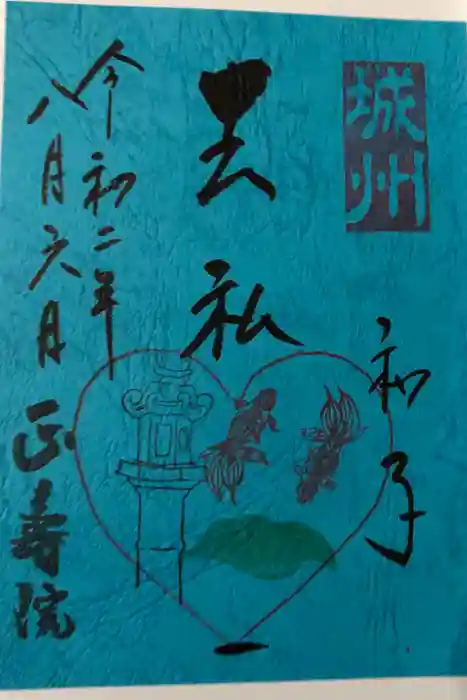 城州
和子
去私
令和二年
八月六日
正寿院